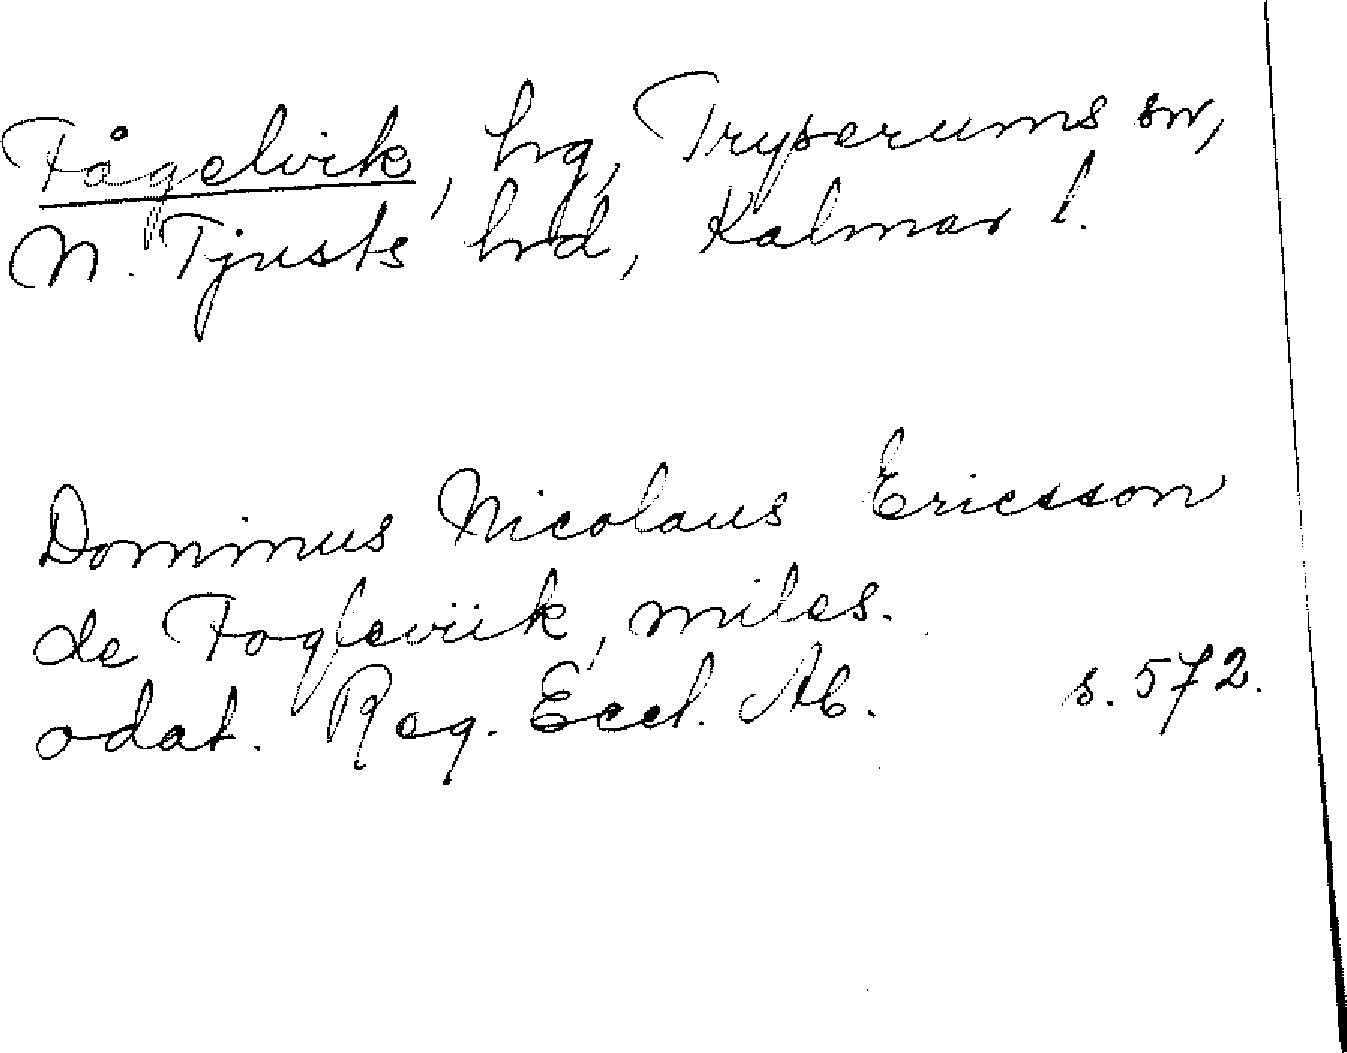 Fågelvik, hg, Tryserums sn,
N. Tjusts hrd, Kalmar l.
Dominus Nicolaus Ericsson
de Fogleviik, miles.
odat. Reg. Eccl. Ab. s. 572.